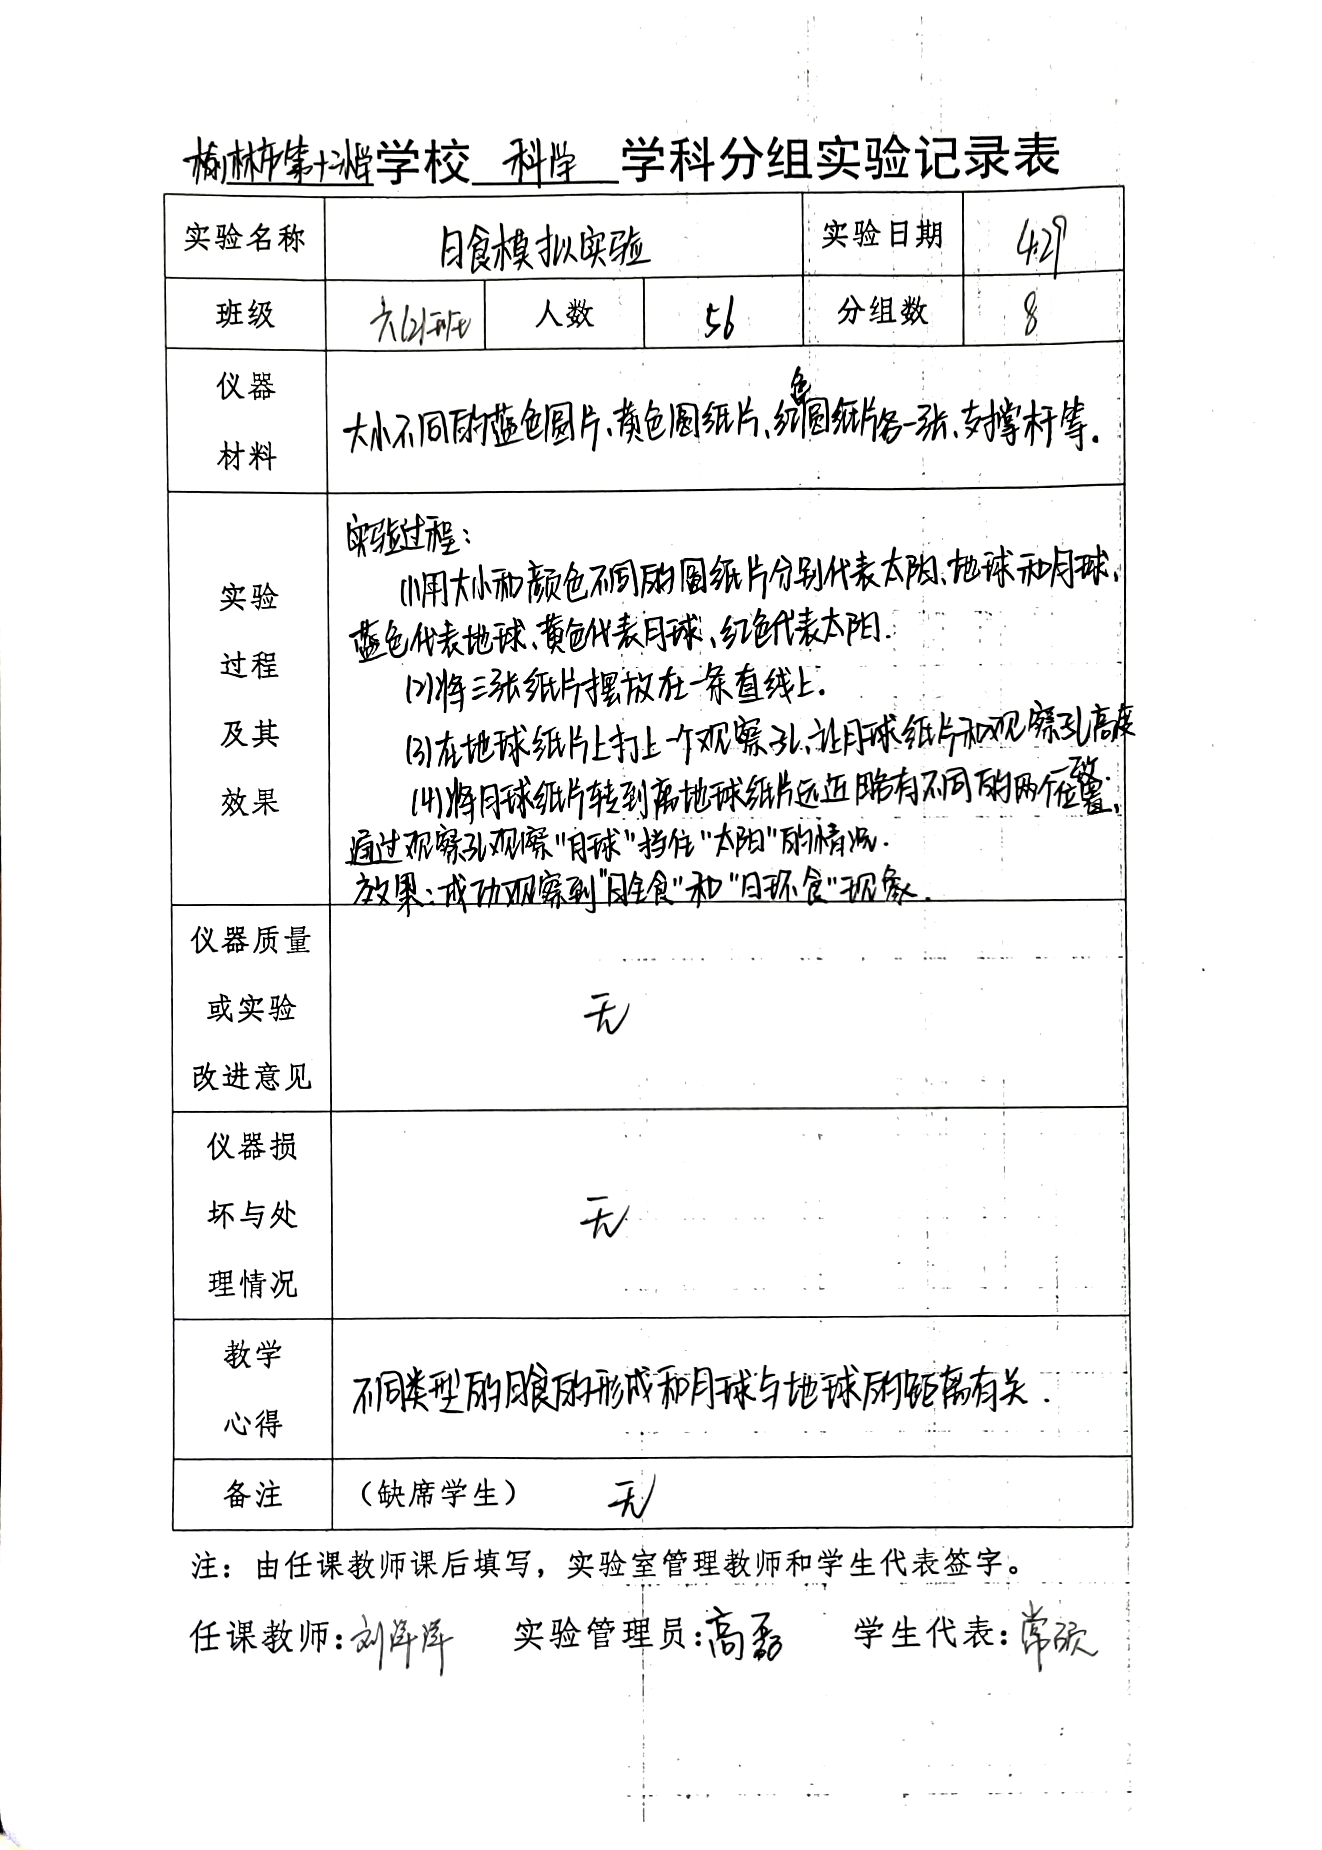 榆林市第十三小学学校 科学 学科分组实验记录表
实验名称 日食模拟实验 实验日期 4.29
班级 六(2)班 人数 56 分组数 8
仪器
材料
大小不同的蓝色圆片、黄色圆纸片、红色圆纸片各一张、支撑杆等。
实验
过程
及其
效果
实验过程:
(1)用大小和颜色不同的圆纸片分别代表太阳、地球和月球,
蓝色代表地球、黄色代表月球、红色代表太阳.
(2)将三张纸片摆放在一条直线上.
(3)在地球纸片上打上一个观察孔、让月球纸片和观察孔高度
一致.
(4)将月球纸片转到离地球纸片远近略有不同的两个位置,
通过观察孔观察“月球”挡住“太阳”的情况.
效果:成功观察到“日全食”和“日环食”现象.
仪器质量
或实验
改进意见
无
仪器损
坏与处
理情况
无
教学
心得
不同类型的日食的形成和月球与地球的距离有关.
备注 (缺席学生) 无
注:由任课教师课后填写,实验室管理教师和学生代表签字。
任课教师:刘洋洋 实验管理员:高磊 学生代表:常硕